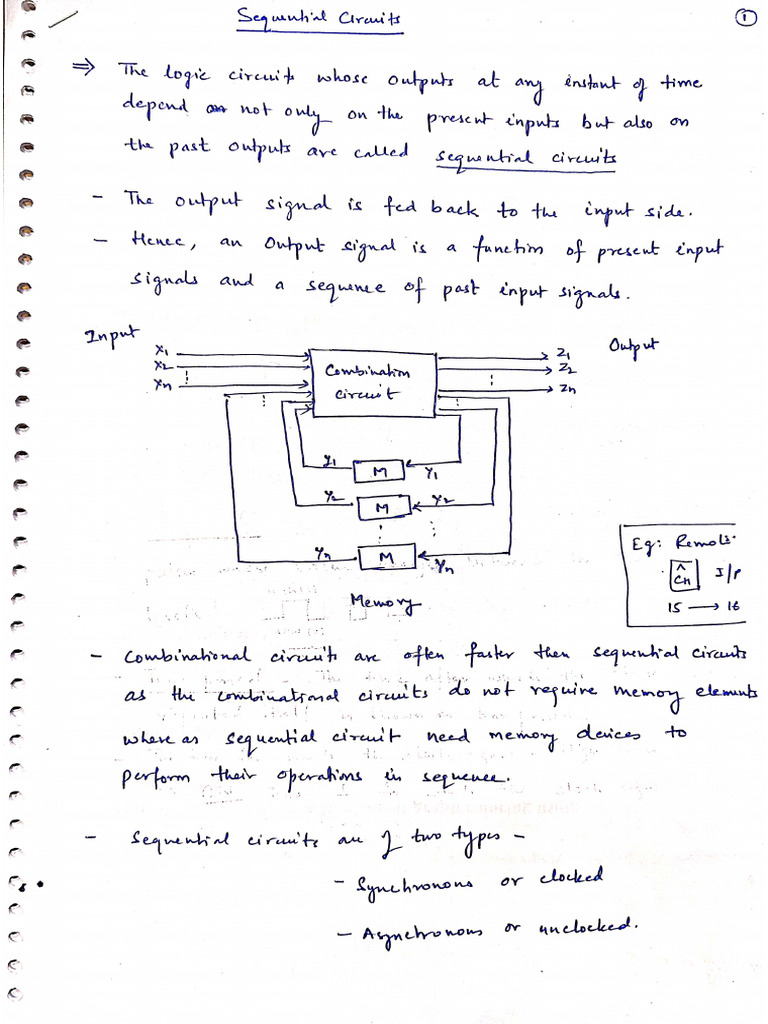 Sequential Circuits
1
⇒ The logic circuits whose outputs at any instant of time
depend not only on the present inputs but also on
the past outputs are called sequential circuits
- The output signal is fed back to the input side.
- Hence, an output signal is a function of present input
signals and a sequence of past input signals.
Input
Output
X1
X2
Xn
Combination
circuit
Z1
Z2
Zn
y1 M Y1
y2 M Y2
yn M Yn
Memory
Eg: Remote
^
Cn I/P
15 → 16
- Combinational circuits are often faster then sequential circuits
as the combinational circuits do not require memory elements
where as sequential circuit need memory devices to
perform their operations in sequence.
- Sequential circuits are of two types -
- Synchronous or clocked
- Asynchronous or unclocked.